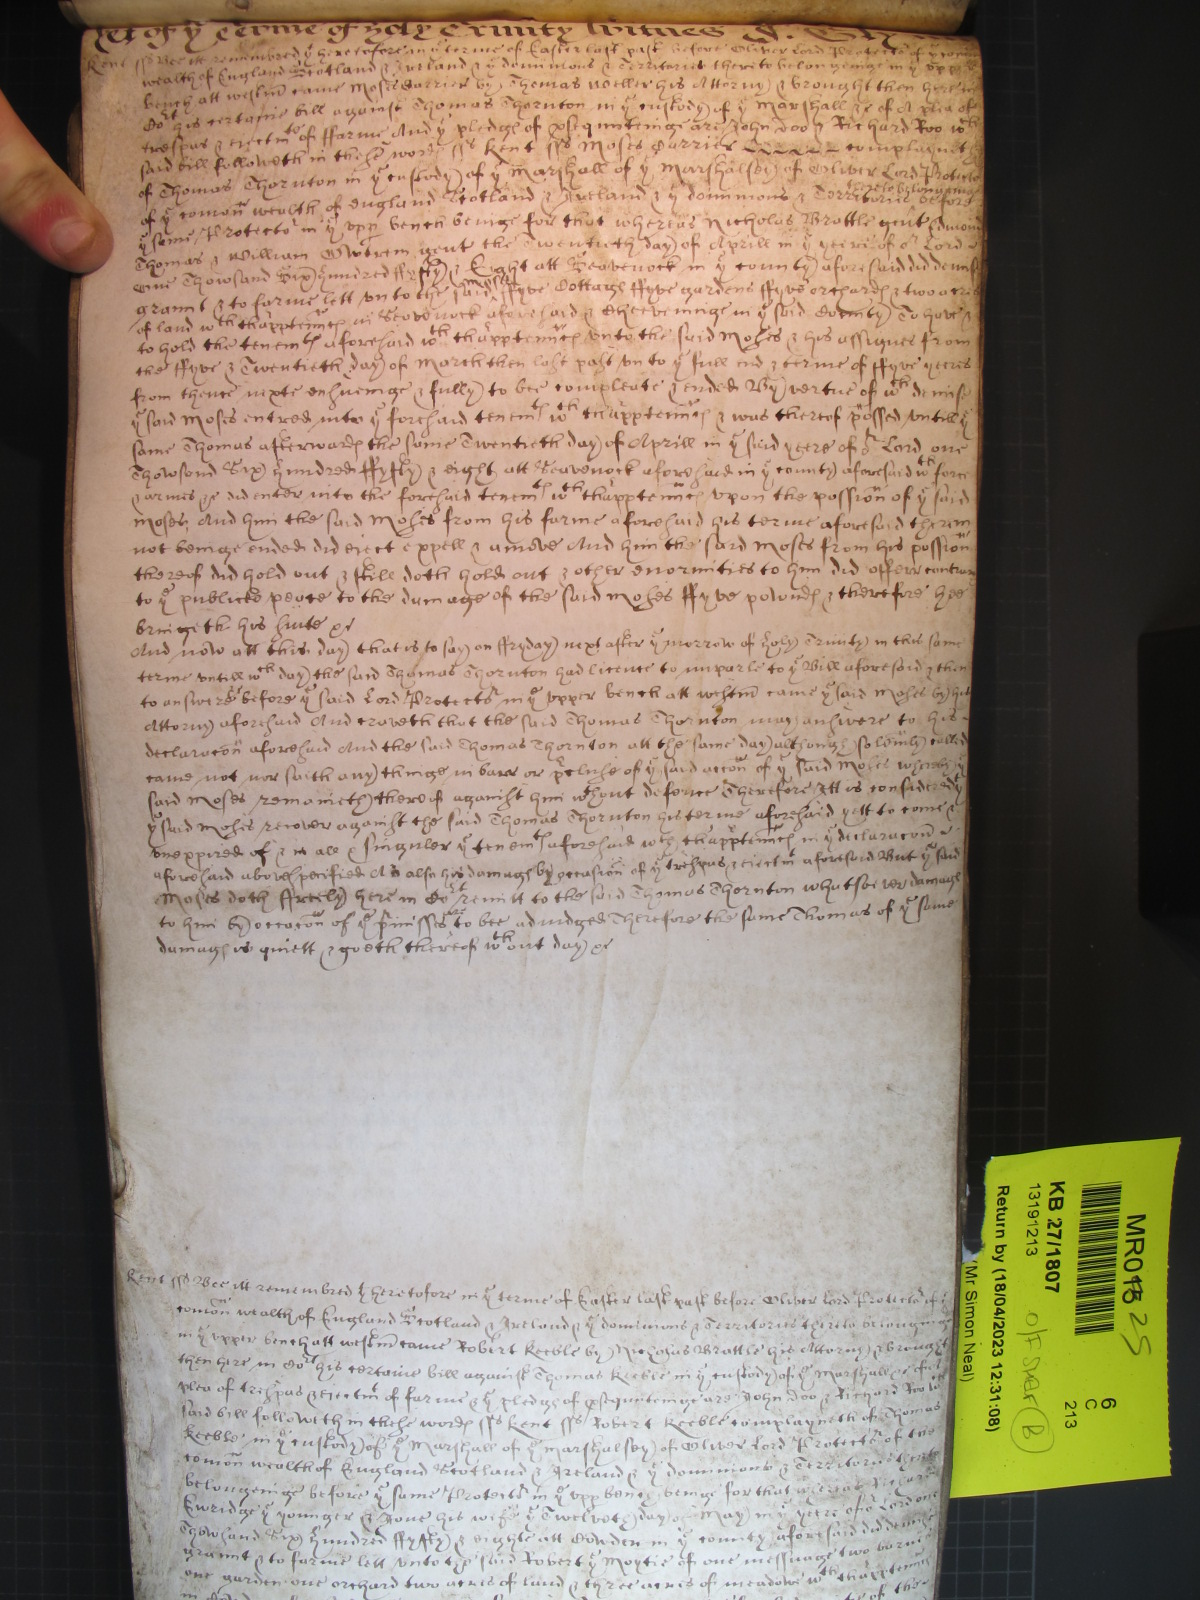 of yͤ terme of Holy Trinity Witnes
Kent ss Bee itt remembred yͭ heretofore in yͤ terme of Easter last past before Oliver Lord Protector of yͤ
wealth of England Scotland & Ireland & yͤ dominions & Territories thereto belonginge in yͤ upp
bench att westm̃ came Moses Carrier by Thomas Weller his Attorny & brought then here in
Coͬt his certaine bill against Thomas Thornton in yͤ custody of yͤ Marshall &c of A plea of
trespas & eiectm̃ͭ of ffarme And yͤ pledgℓ of ꝓsequuteinge are John Doo & Richard Roo wͨh
said bill followeth in these wordℓ ss Kent ss Moses Carrier complayneth
of Thomas Thornton in yͤ custody of yͤ Marshall of yͤ Marshalsey of Oliver Lord Protector
of yͤ com̃on wealth of England Scotland & Ireland & yͤ dominions & Territories thereto belonginge before
yͤ same Protector in yͤ upp bench beinge for that whereas Nicholas Brattle gent Edmond
Thomas & William gent the Twentieth day of Aprill in yͤ yeere of oͬ Lord
One Thowsand Six hundred ffyfty & Eight att Seavenock in yͤ county aforesaid did demise
graunt & to farme lett unto the said Moses ffyve Cottagℓ ffyve gardens ffyve orchardℓ & two acres
of land wͭh thapptenn̄cℓ in Seavenock aforesaid & Cheeveninge in yͤ said County To have &
to hold the tenemͭℓ aforesaid wͭh thapptenn̄cℓ unto the said Moses & his assignes from
the ffyve & Twentieth day of March then last past unto yͤ full end & terme of ffyve yeeres
from thence nexte ensueinge & fully to bee compleate & ended By vertue of wͨh demise
yͤ said Moses entred into yͤ foresaid tenemͭℓ wͭh thapptenn̄cℓ & was thereof possed untill yͤ
same Thomas afterwardℓ the same Twentieth day of Aprill in yͤ said yeere of oͬ Lord one
Thowsand Six hundred ffyfty & eight att Seavenock aforesaid in yͤ county aforesaid wͭh force
& armes &c did enter into the foresaid tenemͭℓ wͭh thapptenn̄cℓ upon the possion of yͤ said
Moses And him the said Moses from his farme aforesaid his terme aforesaid therein
not beinge ended did eiect expell & amove And him the said Moses from his possion
thereof did hold out & still doth hold out & other enormities to him did offerr contrary
to yͤ publicke peace to the damage of the said Moses ffyve powndℓ & therefore hee
bringeth his suite &c
And now att this day that is to say on ffryday next after yͤ morrow of holy Trinity in this same
terme untill wͨh day the said Thomas Thornton had licence to imparle to yͤ Bill aforesaid & then
to answere before yͤ said Lord Protector in yͤ upper bench att westm̃ came yͤ said Moses by his
Attorny aforesaid And craveth that the said Thomas Thornton may answere to his
declaracon aforesaid And the said Thomas Thornton att the same day although solemly called
came not nor saith any thinge in barr or pcluse of yͤ said accon of yͤ said Moses whereby yͤ
said Moses remaineth thereof against him wͭhout defence Therefore Itt is considered yͭ
yͤ said Moses recover against the said Thomas Thornton his terme aforesaid yett to come &
unexpired of & in all & singuler yͤ tenemͭℓ aforesaid wͭh thapptenn̄cℓ in yͤ declaracon
aforesaid above specified And also his damagℓ by occasion of yͤ trespas & eiectmͭ aforesaid But yͤ said
Moses doth ffreely here in Coͬt remitt to the said Thomas Thornton whatsoever damagℓ
to him by occacon of yͤ p̃misses are to bee adiudged Therefore the same Thomas of yͤ same
damagℓ is quiett & goeth thereof wͭhout day &c
Kent ss Bee itt remembred yͭ heretofore in yͤ terme of Easter last past before Oliver Lord Protector of yͤ
com̃on wealth of England Scotland & Ireland & yͤ dominions & Territories thereto belonginge
in yͤ upper bench att westm̃ came Robert Keeble by Nicholas Brattle his Attorny & brought
then here in Coͬt his certaine bill against Thomas Keeble in yͤ custody of yͤ Marshall &c of a
plea of trespas & eiectmͭ of farme & yͤ pledgℓ of ꝓsequuteinge are John Doo & Richard Roo wͨh
said bill followeth in these wordℓ ss Kent ss Robert Keeble complayneth of Thomas
Keeble in yͤ custody of yͤ Marshall of yͤ Marshalsey of Oliver Lord Protector of the
com̃on wealth of England Scotland & Ireland & yͤ dominions & Territories thereto
belonginge before yͤ same Protector in yͤ upp bench beinge for that whereas Richard
Ewridge yͤ younger & Jone his wife yͤ Twelveth day of May in yͤ yeere of oͬ Lord one
Thowsand Six hundred ffyfty & eighte att Cowden in yͤ county aforesaid did demise
graunt & to farme lett unto the said Robert yͤ Moytie of one messuage two barnes
one garden one orchard two acres of land & three acres of meadowe wͭh thapptenn̄cℓ
MR018 25
6
C
213
KB 27/1807
13191213
Off Spec B
Return by (18/04/2023 12:31:08)
(Mr Simon Neal)